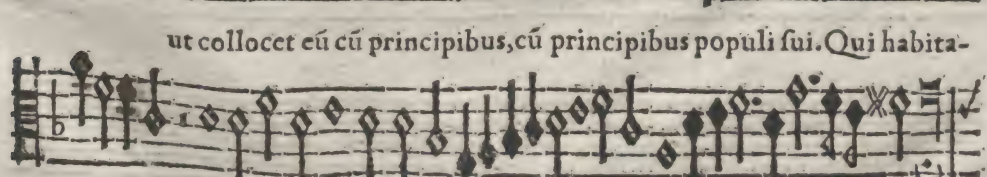 ut collocet eū cū principibus,cū principibus populi ſui.Qui habita-